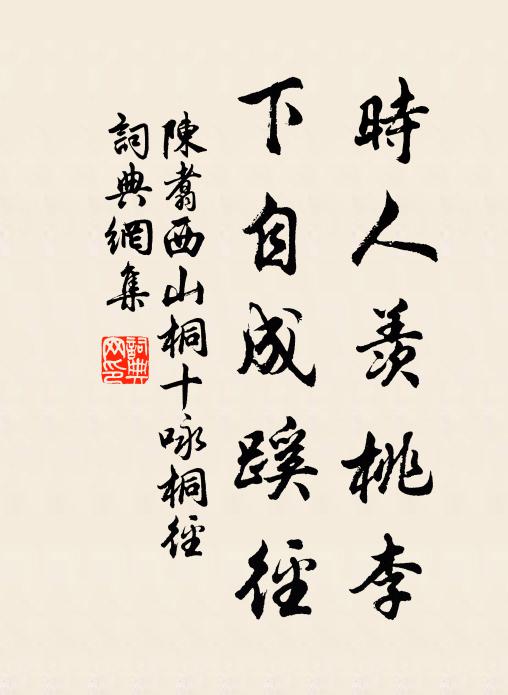 時人羨桃李
下自成蹊徑
陳翥西山桐十咏桐徑
詞典網集
詞典網印